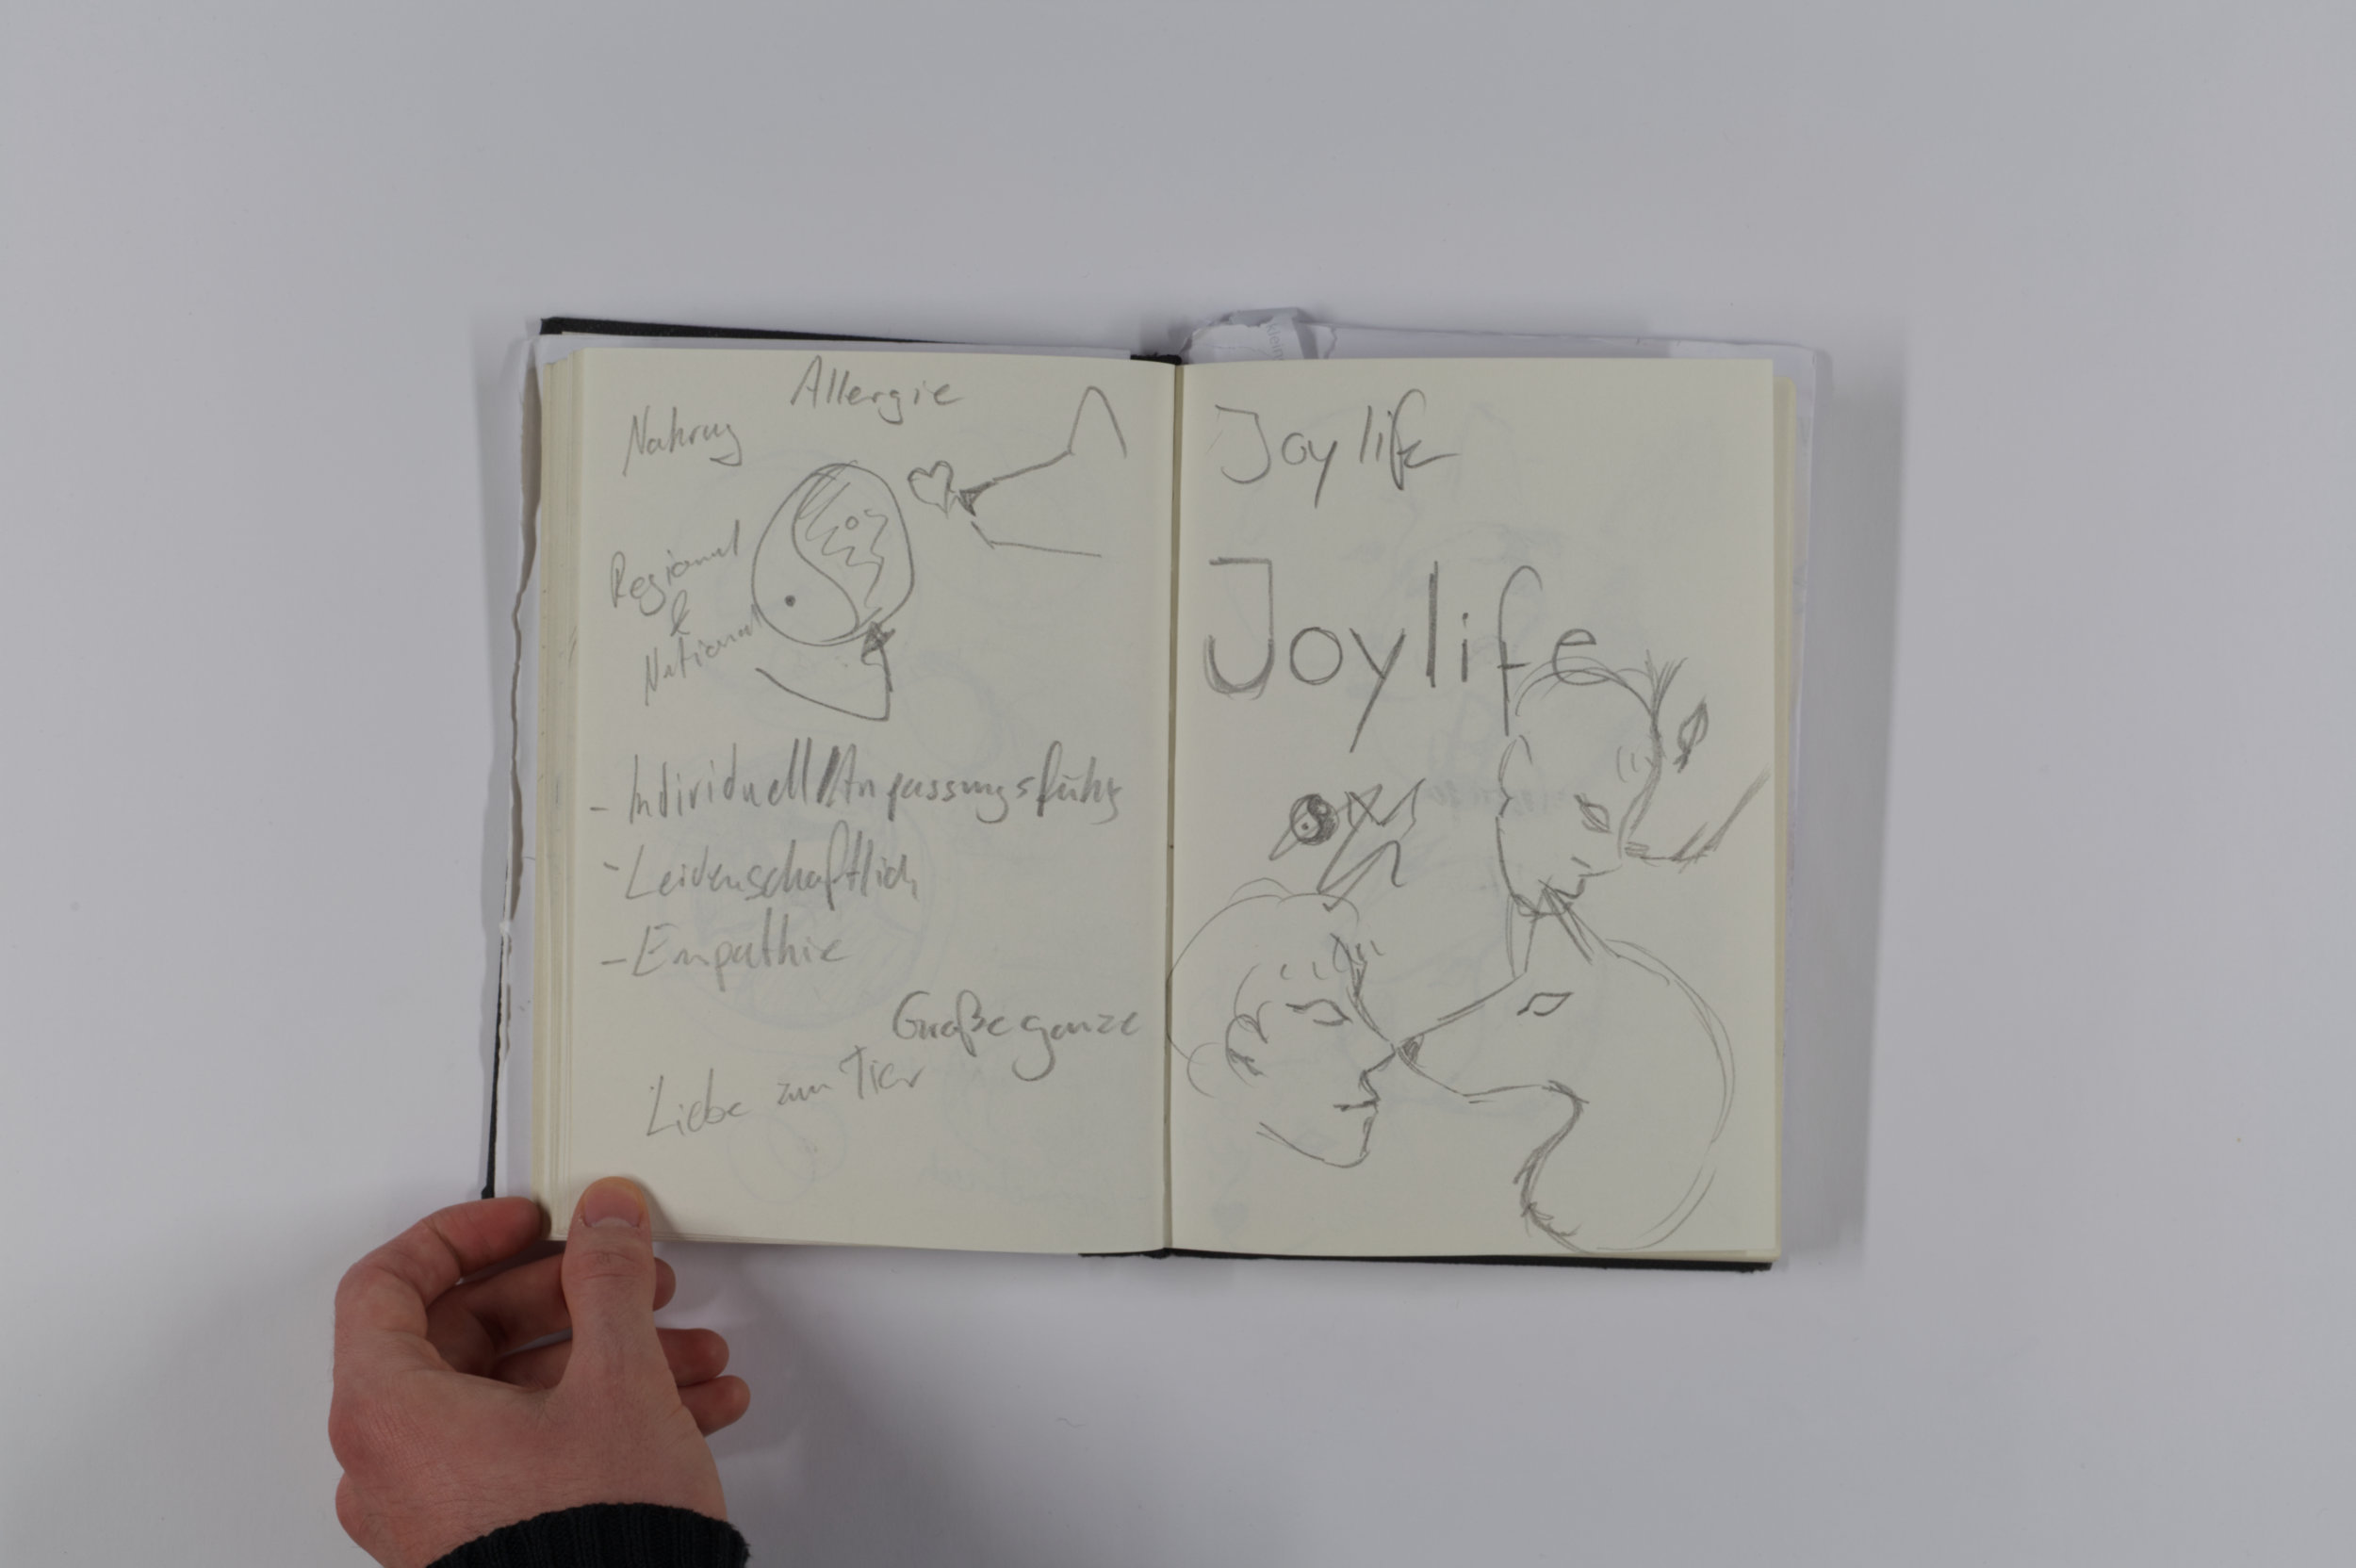 Allergie
Nahrung
Regional
&
National
- Individuell/Anpassungsfähig
- Leidenschaftlich
- Empathie
Große ganze
Liebe zum Tier
Joylife
Joylife